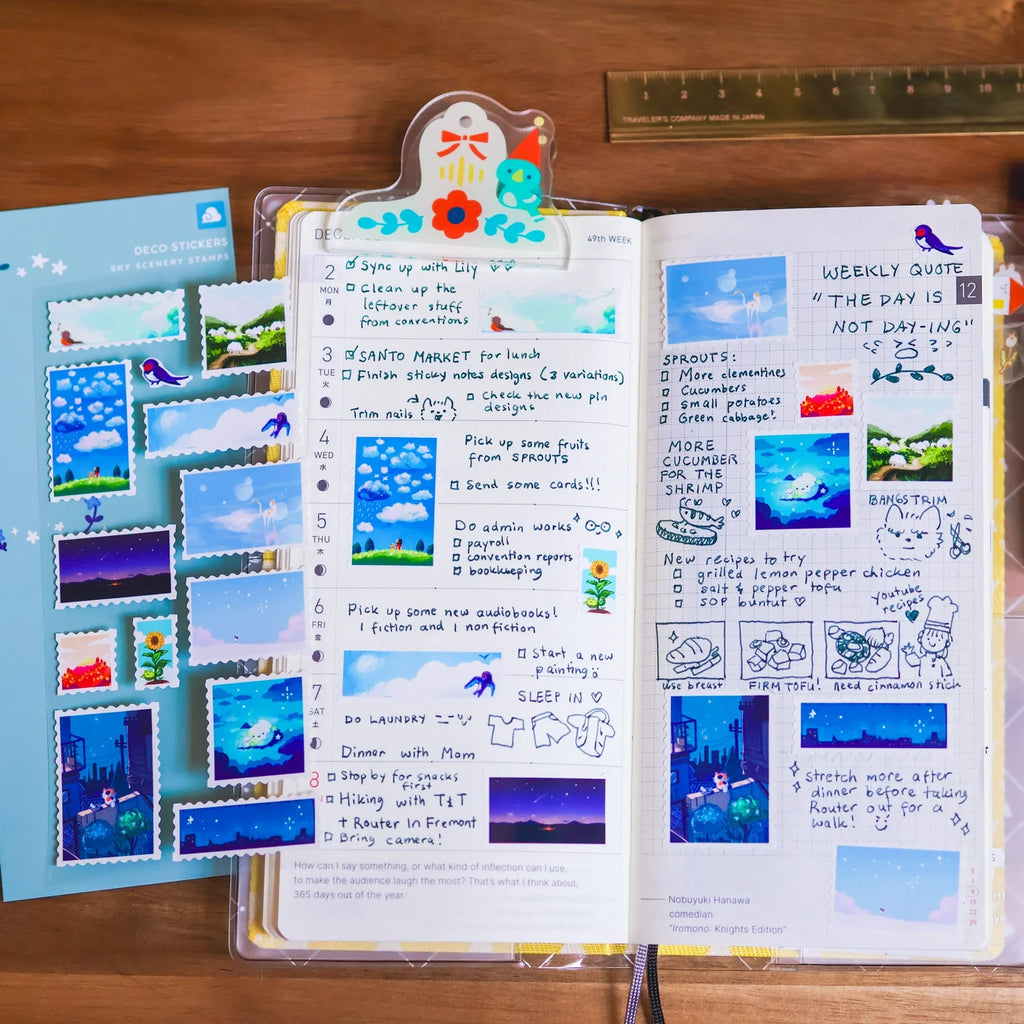 1 2 3 4 5 6 7 8 9 10 11
TRAVELER'S COMPANY MADE IN JAPAN
DECO STICKERS
SKY SCENERY STAMPS
49th WEEK
2
MON
月
☑ Sync up with Lily ♡♡
☐ Clean up the
leftover stuff
from conventions
3
TUE
火
☑ SANTO MARKET for lunch
☐ Finish sticky notes designs (3 variations)
Trim nails
☐ Check the new pin
designs
4
WED
水
Pick up some fruits
from SPROUTS
☐ Send some cards!!!
5
THU
木
Do admin works
☐ payroll
☐ convention reports
☐ bookkeeping
6
FRI
金
Pick up some new audiobooks!
1 fiction and 1 nonfiction
☐ Start a new
painting
7
SAT
土
SLEEP IN ♡
DO LAUNDRY
Dinner with Mom
8
☐ Stop by for snacks
first
☐ Hiking with T&T
+ Router in Fremont
☐ Bring camera!
How can I say something, or what kind of inflection can I use,
to make the audience laugh the most? That's what I think about,
365 days out of the year.
12
WEEKLY QUOTE
"THE DAY IS
NOT DAY-ING"
SPROUTS:
☐ More clementines
☐ Cucumbers
☐ small potatoes
☐ Green cabbage!
MORE
CUCUMBER
FOR THE
SHRIMP
BANGS TRIM
New recipes to try
☐ grilled lemon pepper chicken
☐ salt & pepper tofu
☐ SOP buntut ♡
Youtube
recipes
use breast
FIRM TOFU!
need cinnamon stick
Stretch more after
dinner before taking
Router out for a
walk!
Nobuyuki Hanawa
comedian
"Iromono: Knights Edition"